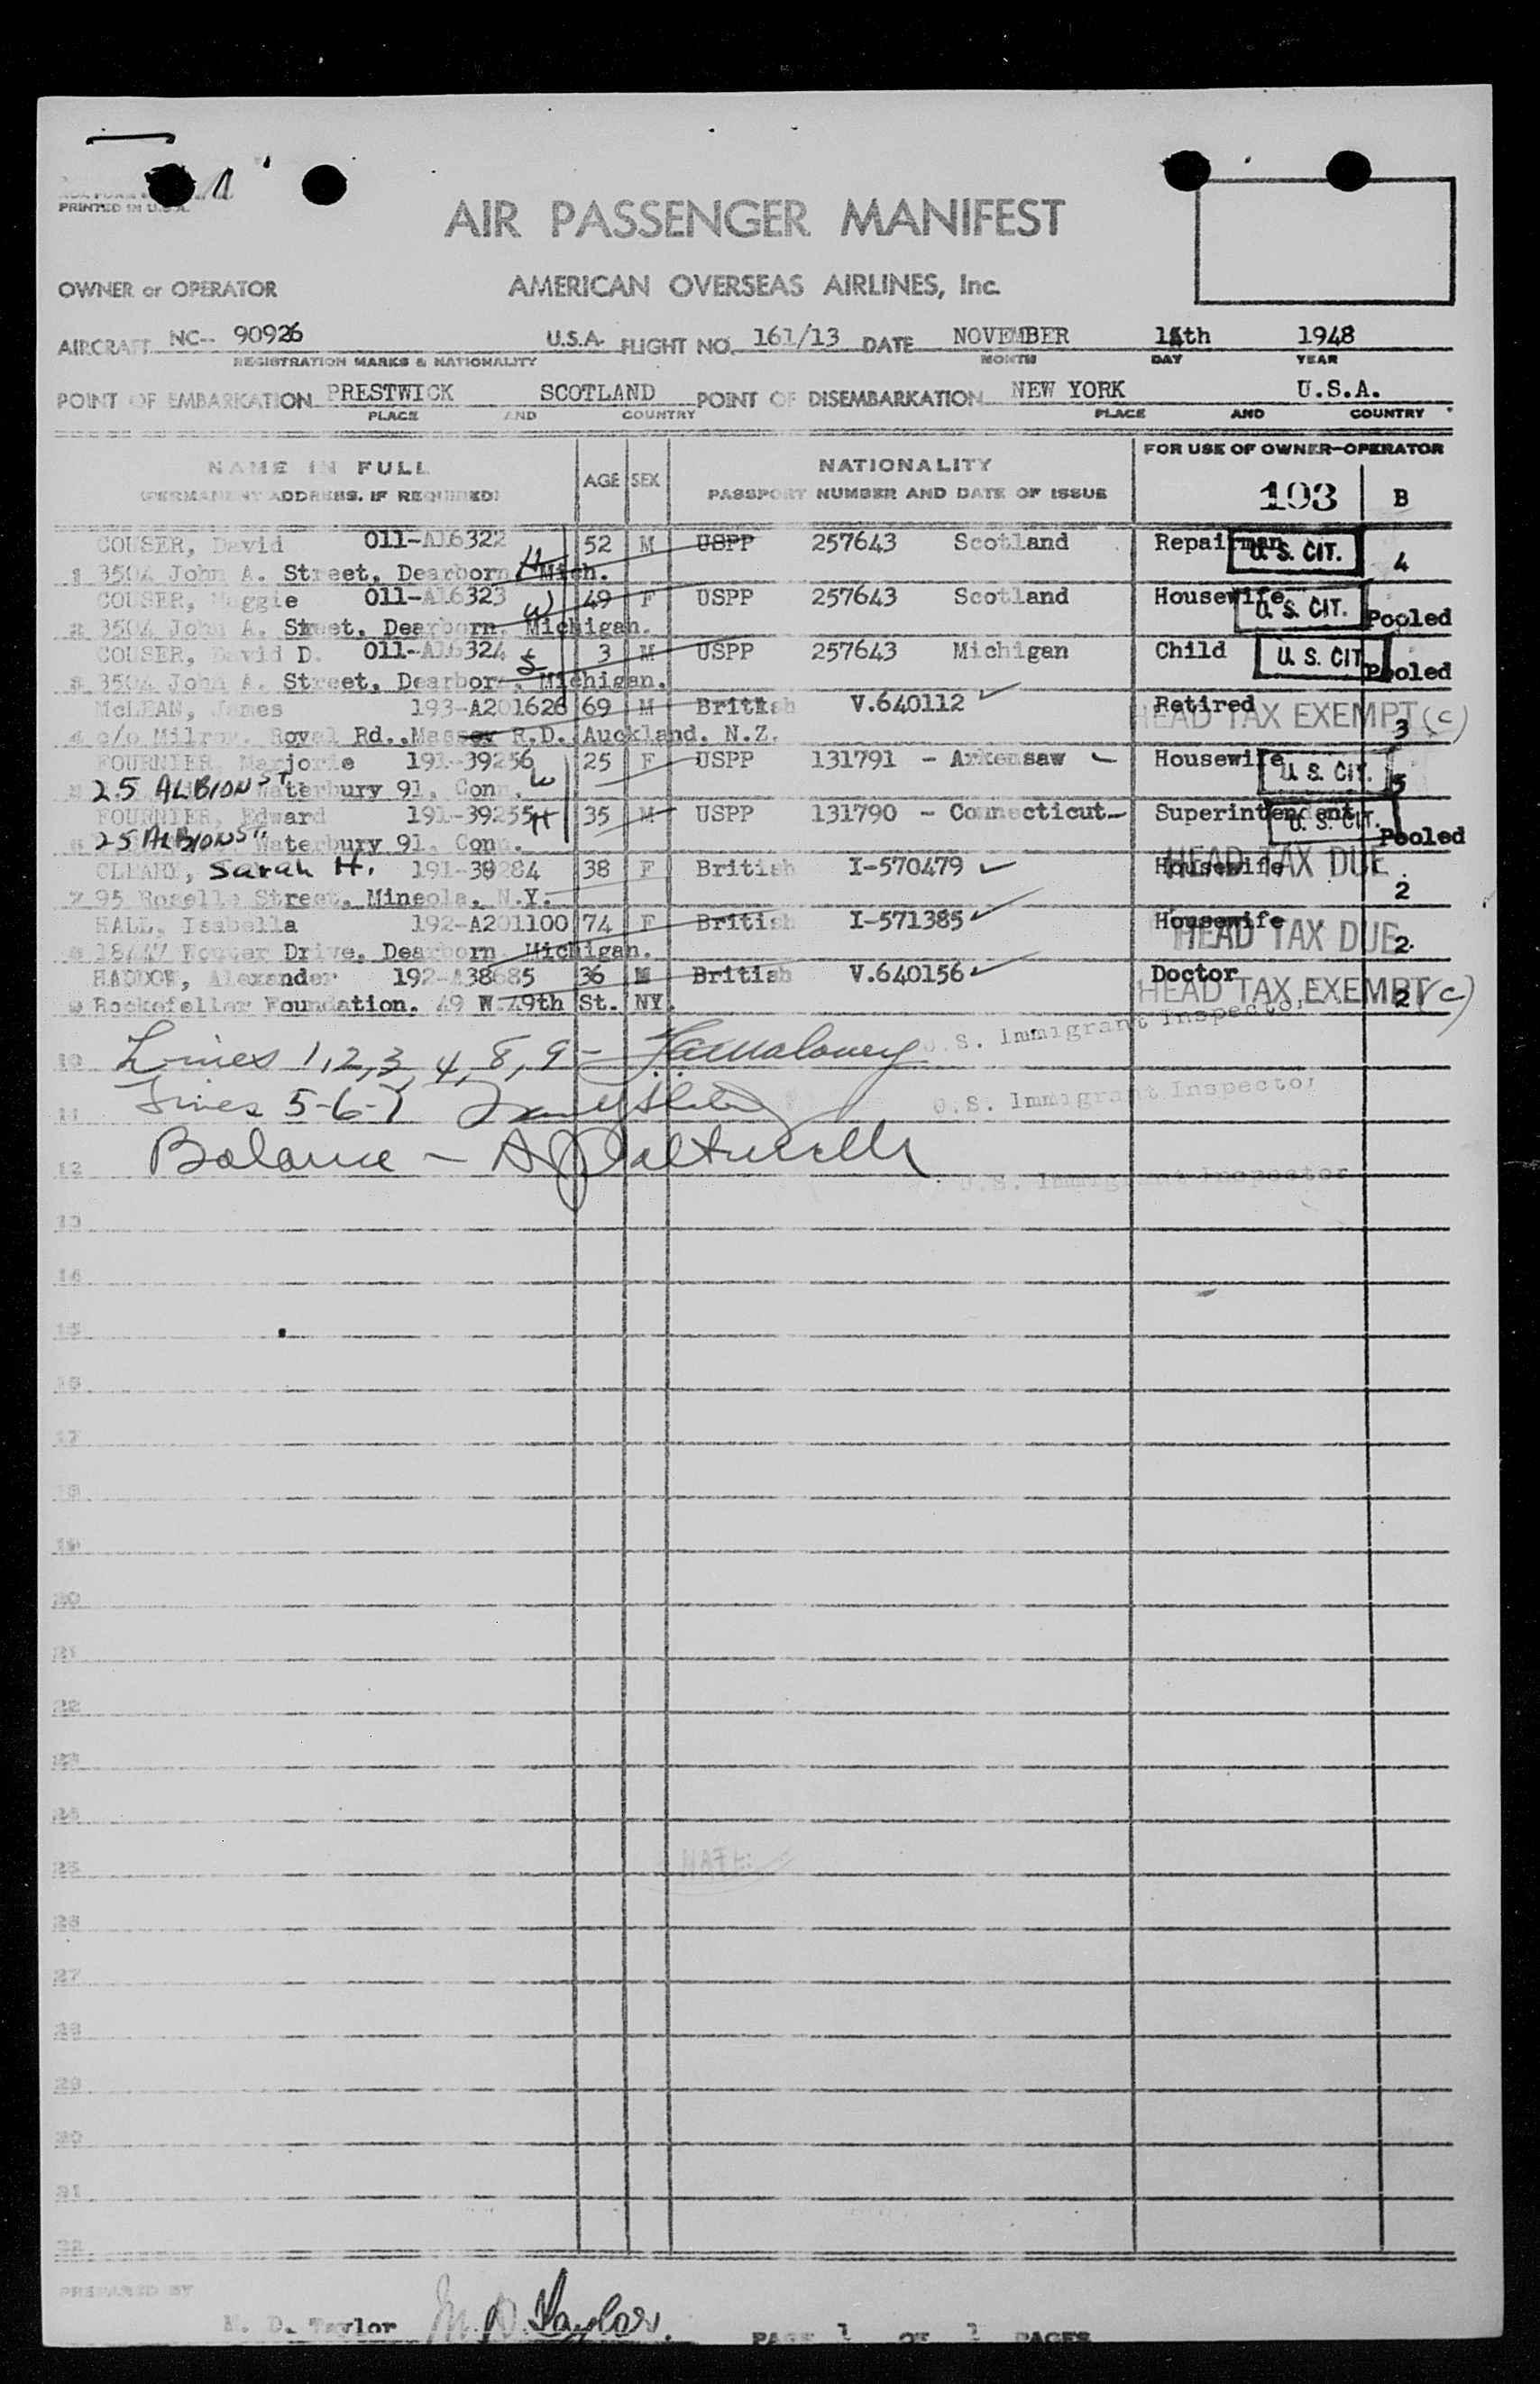 PRINTED IN U.S.A.
AIR PASSENGER MANIFEST
OWNER or OPERATOR AMERICAN OVERSEAS AIRLINES, Inc.
AIRCRAFT NC-- 90926 U.S.A. FLIGHT NO. 161/13 DATE NOVEMBER 1th 1948
REGISTRATION MARKS & NATIONALITY MONTH DAY YEAR
POINT OF EMBARKATION PRESTWICK SCOTLAND POINT OF DISEMBARKATION NEW YORK U.S.A.
PLACE AND COUNTRY PLACE AND COUNTRY
NAME IN FULL AGE SEX NATIONALITY FOR USE OF OWNER-OPERATOR
(PERMANENT ADDRESS, IF REQUIRED) PASSPORT NUMBER AND DATE OF ISSUE 103 B
COUSER, David 011-A16322 H 52 M USPP 257643 Scotland Repairman U. S. CIT. 4
1 3504 John A. Street, Dearborn, Mich.
COUSER, Maggie 011-A16323 W 49 F USPP 257643 Scotland Housewife U. S. CIT. Pooled
2 3504 John A. Street, Dearborn, Michigan.
COUSER, David D. 011-A16324 S 3 M USPP 257643 Michigan Child U. S. CIT. Pooled
3 3504 John A. Street, Dearborn, Michigan.
McLEAN, James 193-A201626 69 M British V.640112 Retired HEAD TAX EXEMPT (C) 3
4 c/o Milroy, Royal Rd., Massey R.D. Auckland. N.Z.
FOURNIER, Marjorie 191-39256 W 25 F USPP 131791 - Arkensaw Housewife U. S. CIT. 5
25 ALBION ST Waterbury 91, Conn.
FOURNIER, Edward 191-39255 H 35 M USPP 131790 - Connecticut Superintendent U. S. CIT. Pooled
6 25 ALBION ST Waterbury 91, Conn.
Sarah H. 191-39284 38 F British I-570479 Housewife HEAD TAX DUE 2
7 95 Roselle Street, Mineola, N.Y.
HALL, Isabella 192-A201100 74 F British I-571385 Housewife HEAD TAX DUE 2
8 Drive, Dearborn Michigan.
HADDOW, Alexander 192-A38685 36 M British V.640156 Doctor HEAD TAX EXEMPT (C) 2
9 Rockefeller Foundation. 49 W 49th St. NY.
10 Lines 1, 2, 3, 4, 8, 9 - U.S. Immigrant Inspector
11 Lines 5-6-7 U.S. Immigrant Inspector
12 Balance - U.S. Immigrant Inspector
13
14
15
16
17
18
19
20
21
22
23
24
25
26
27
28
29
30
31
32
PREPARED BY
M. D. Taylor M. D. Taylor. PAGE 1 OF 1 PAGES